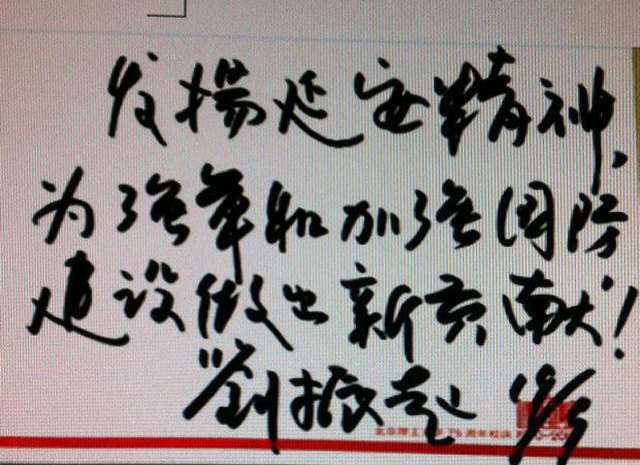 发揚延安精神,
为强軍和加强国防
建设做出新贡献!
劉振起